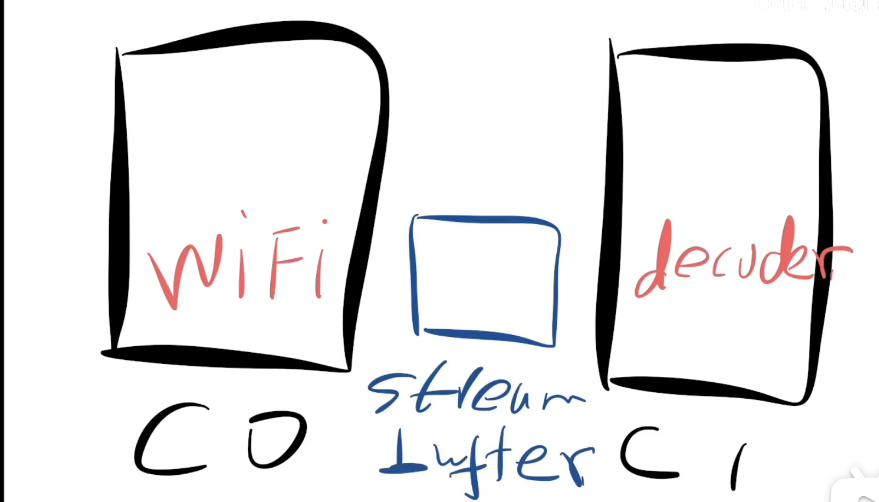 WiFi
decoder
stream
buffer
C0
C1